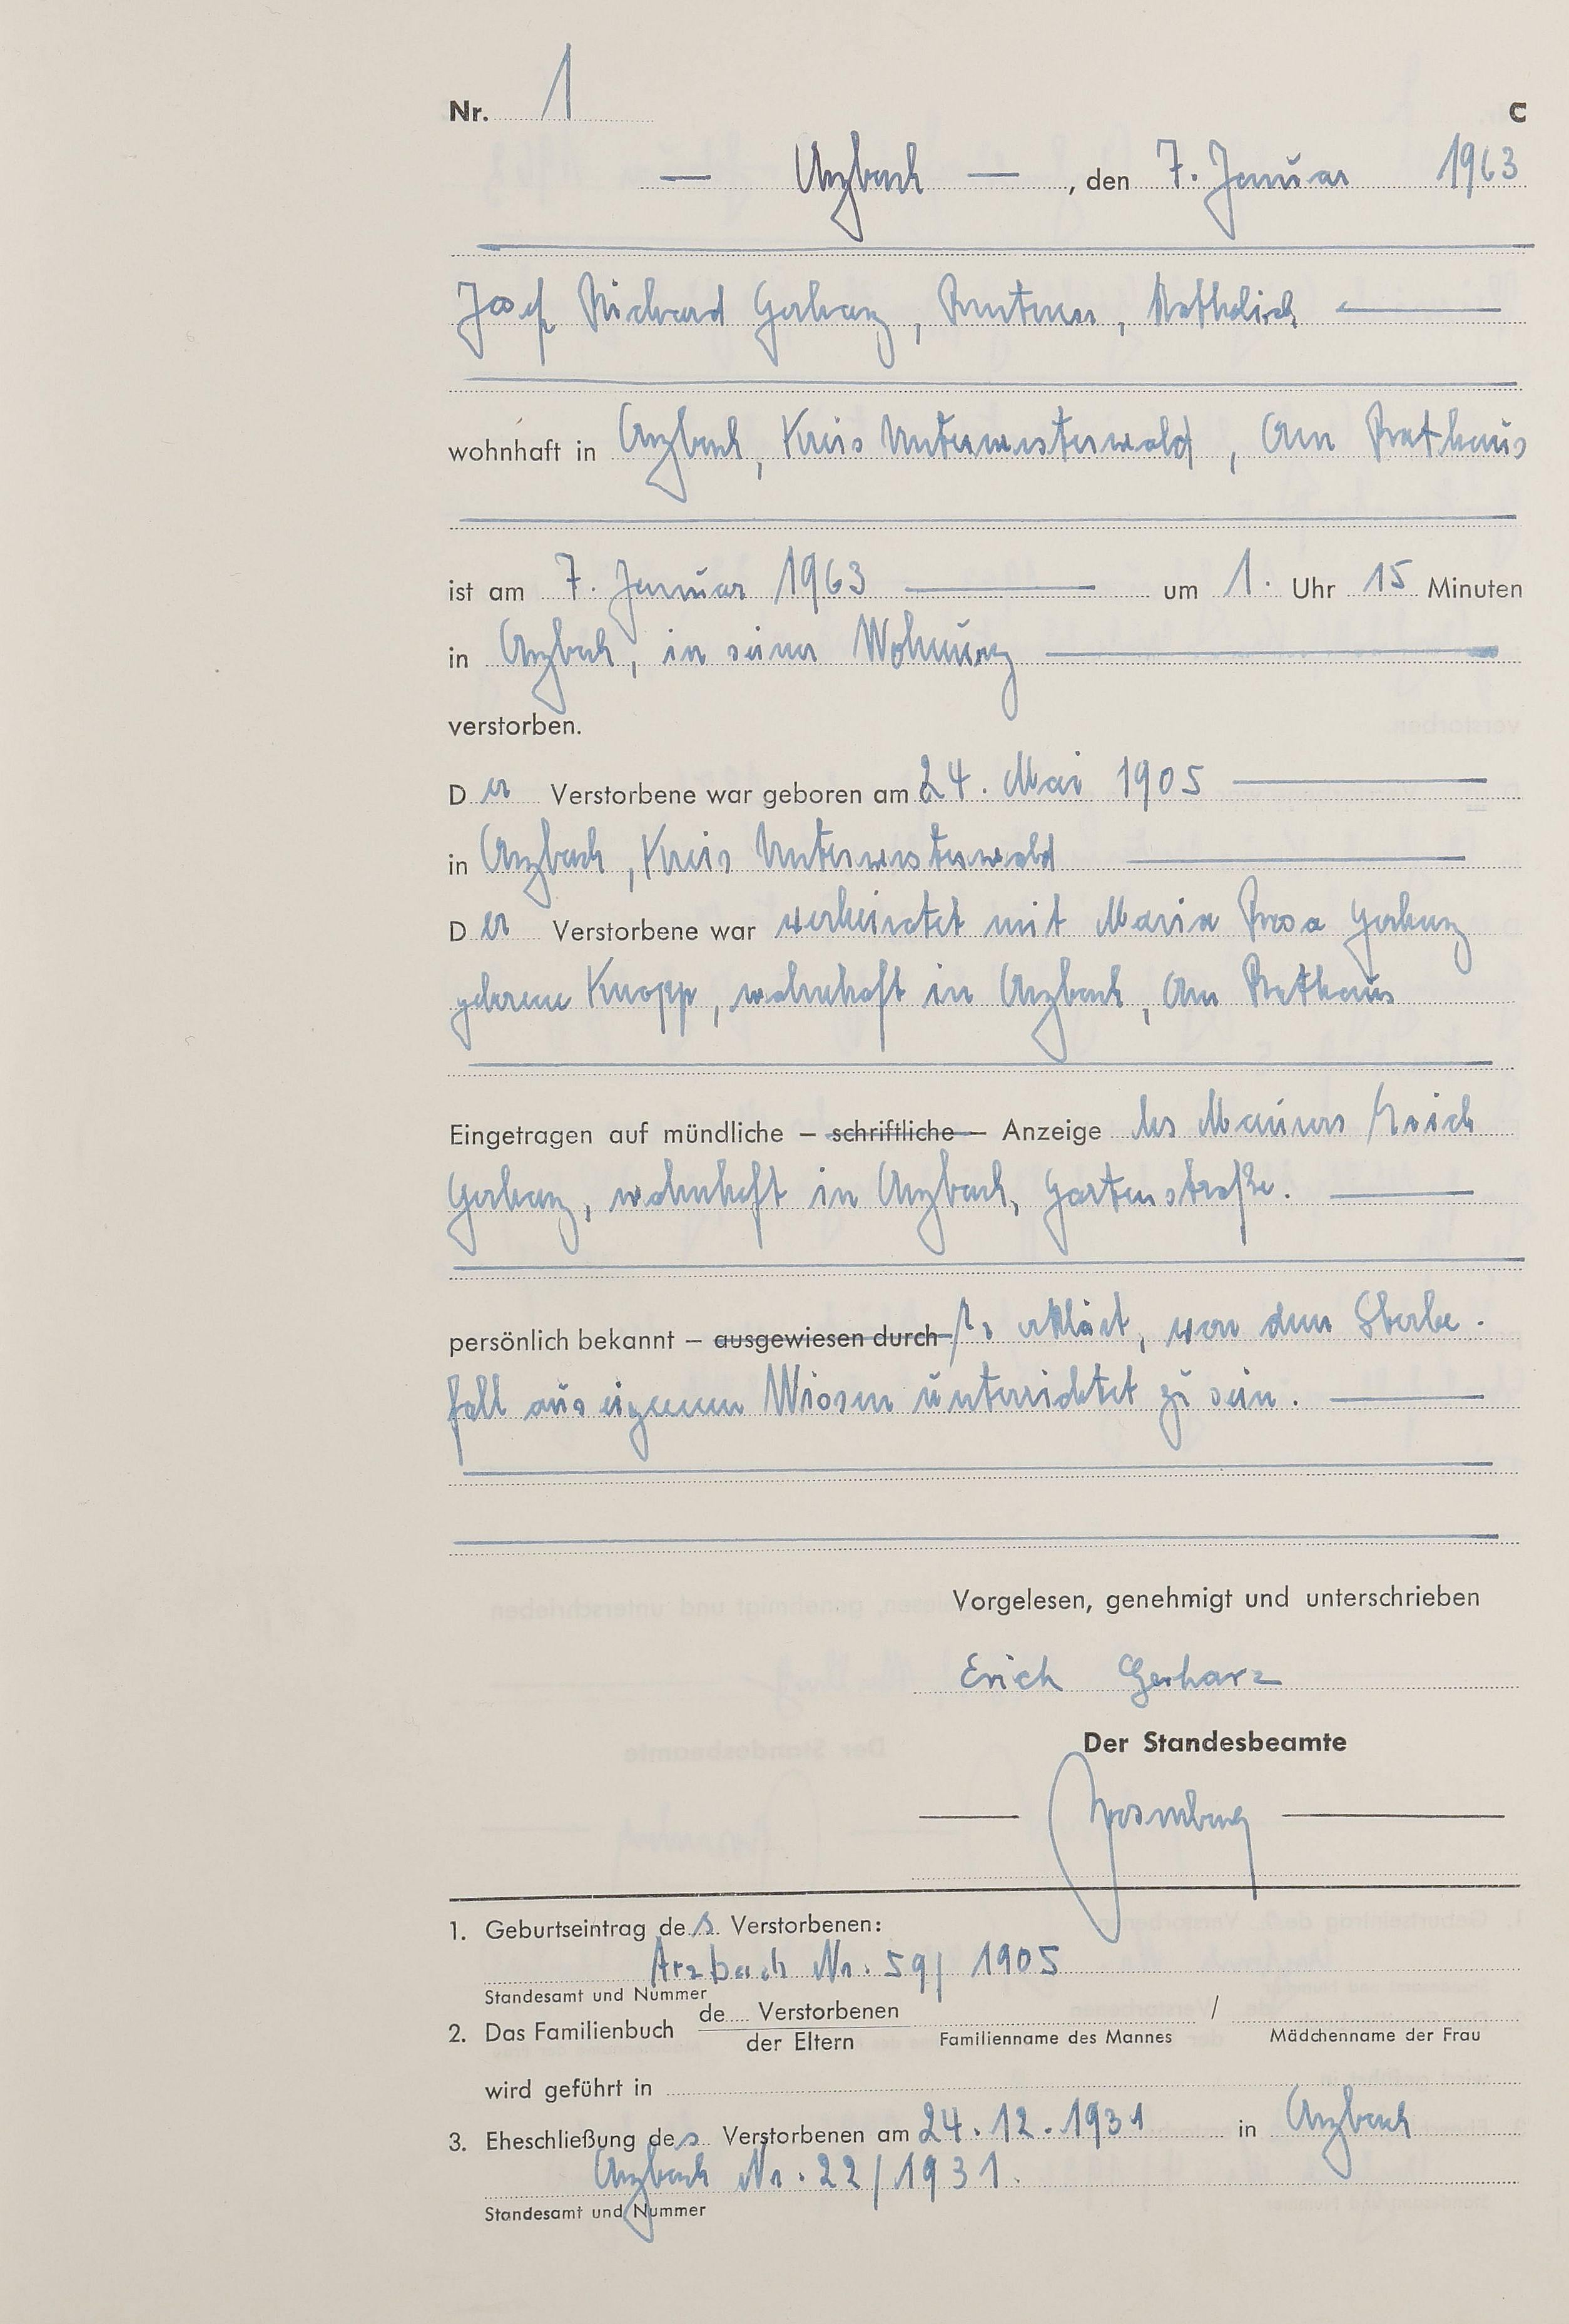 Nr. 1 C
— Arzbach — , den 7. Januar 1963
Josef Richard Gerharz, Rentner, katholisch —
wohnhaft in Arzbach, Kreis Unterwesterwald, Am Rathaus
ist am 7. Januar 1963 — um 1. Uhr 15 Minuten
in Arzbach, in seiner Wohnung —
verstorben.
Der Verstorbene war geboren am 24. Mai 1905 —
in Arzbach, Kreis Unterwesterwald —
Der Verstorbene war verheiratet mit Maria Rosa Gerharz
geborene Knopp, wohnhaft in Arzbach, Am Rathaus
Eingetragen auf mündliche – schriftliche – Anzeige des Maurers Erich
Gerharz, wohnhaft in Arzbach, Gartenstraße. —
persönlich bekannt – ausgewiesen durch – Er erklärt, von dem Sterbe-
fall aus eigenem Wissen unterrichtet zu sein. —
Vorgelesen, genehmigt und unterschrieben
Erich Gerharz
Der Standesbeamte
1. Geburtseintrag des Verstorbenen:
Arzbach Nr. 59/1905
Standesamt und Nummer
2. Das Familienbuch de.... Verstorbenen /
der Eltern Familienname des Mannes Mädchenname der Frau
wird geführt in
3. Eheschließung des Verstorbenen am 24.12.1931 in Arzbach
Arzbach Nr. 22/1931.
Standesamt und Nummer